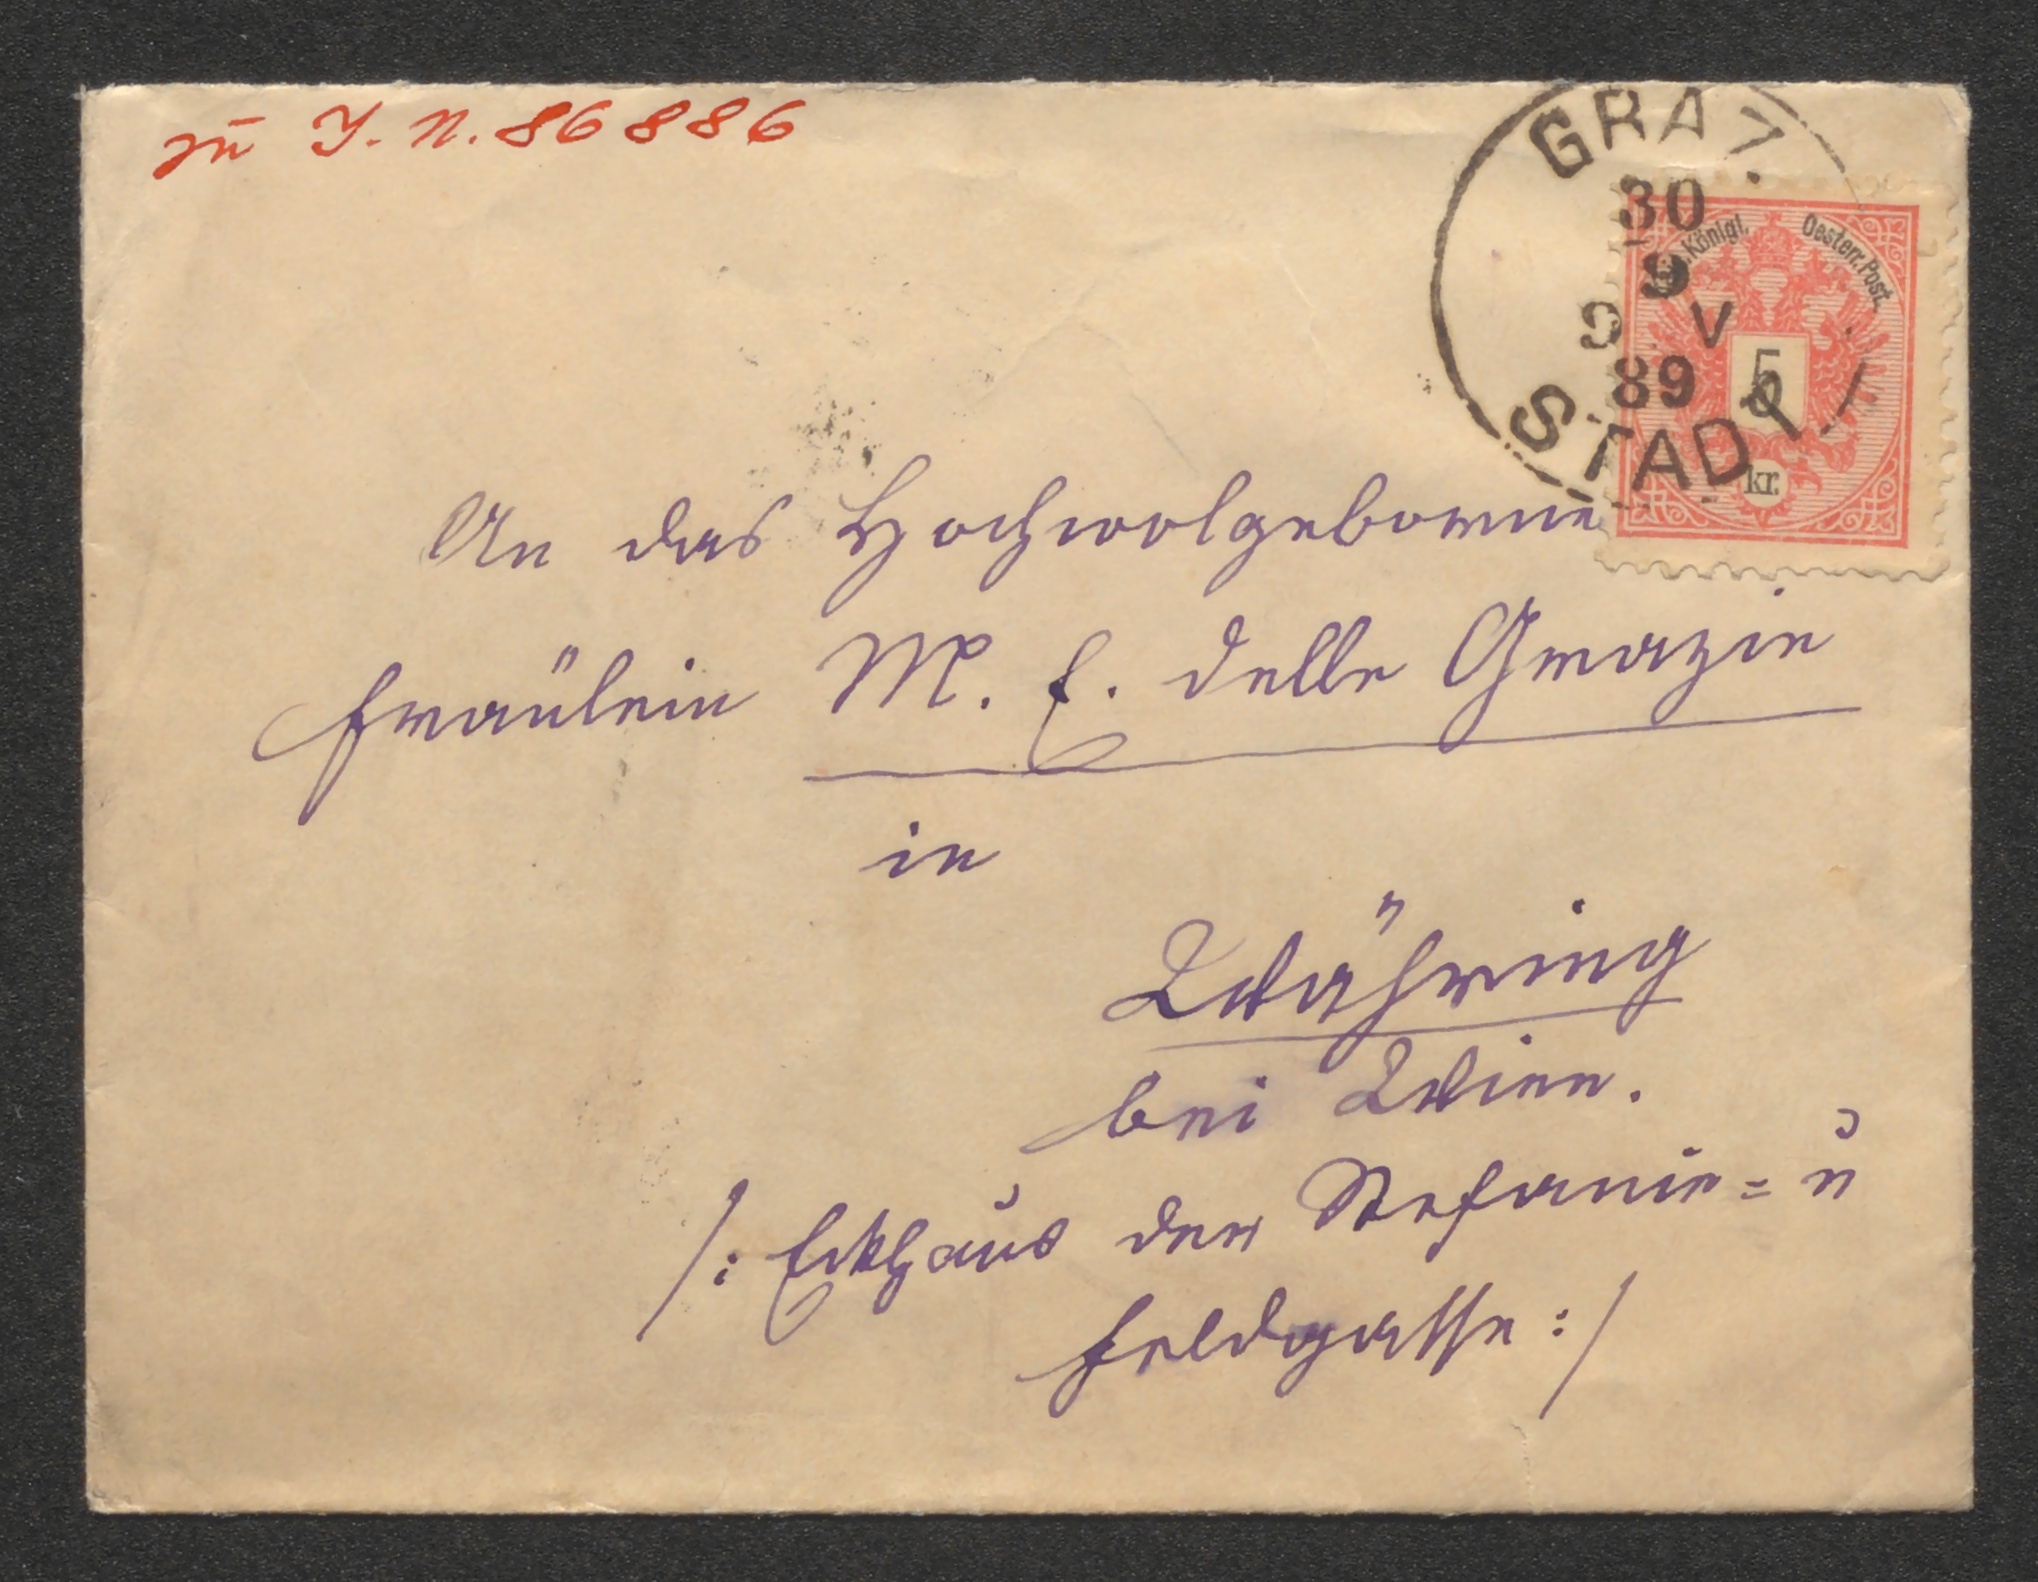 zu I. N. 86886
GRAZ
30
9
9 V
89
STADT
Königl. Oesterr. Post.
5
kr.
An das Hochwolgeborne
Fräulein M. E. delle Grazie
in
Währing
bei Wien.
/: Eckhaus der Stefanie= u
Feldgasse :/